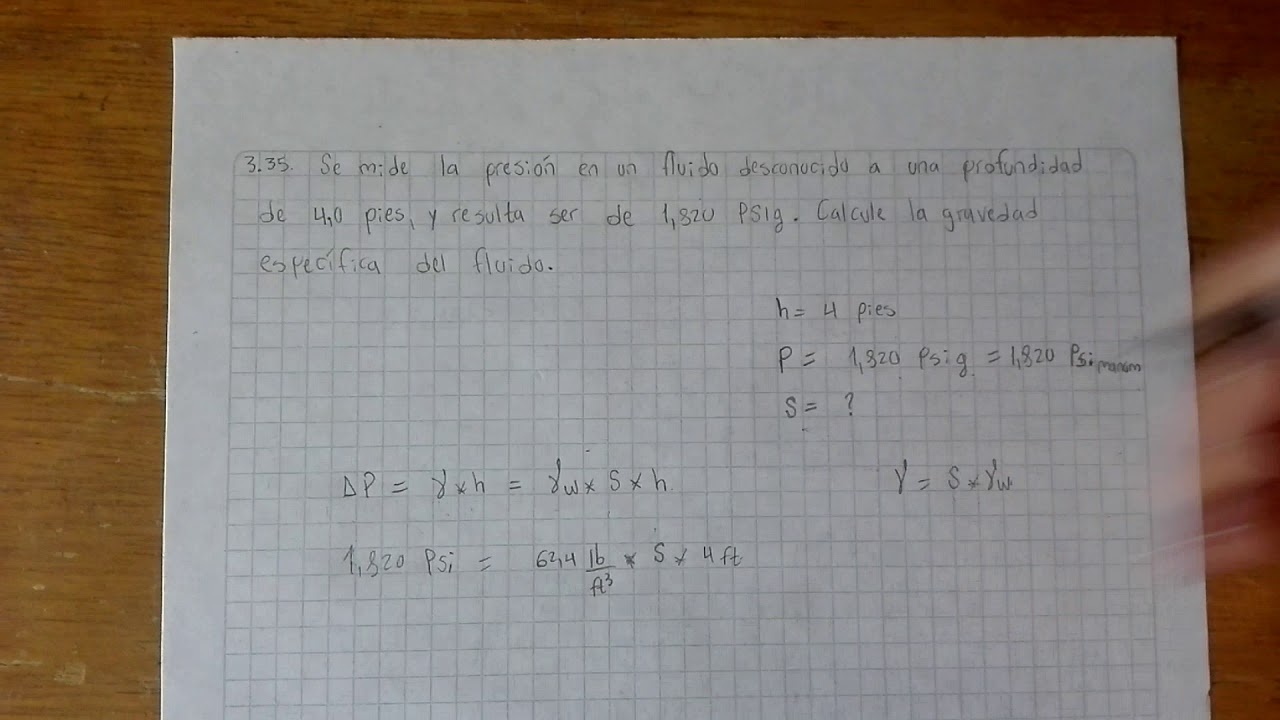 3.35. Se mide la presión en un fluido desconocido a una profundidad
de 4,0 pies, y resulta ser de 1,820 PSig. Calcule la gravedad
específica del fluido.
h= 4 pies
P = 1,820 Psig = 1,820 Psi manom
S = ?
ΔP = γ*h = γw* S * h
γ = S * γw
1,820 Psi = 62,4 lb/ft³ * S * 4 ft